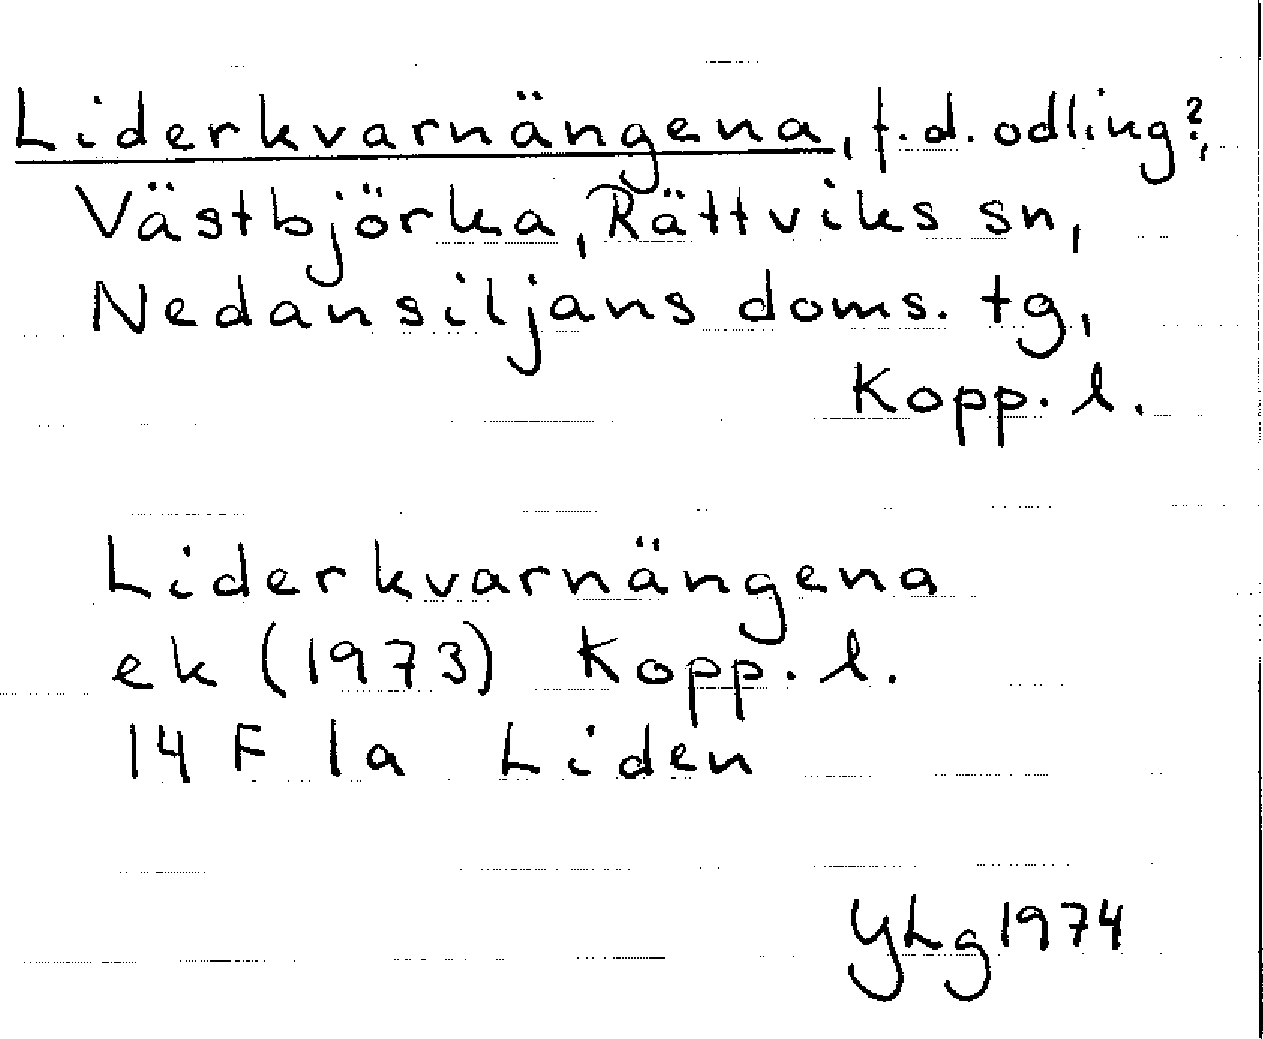 Liderkvarnängena, f.d. odling?,
Västbjörka, Rättviks sn,
Nedansiljans doms. tg,
Kopp. l.
Liderkvarnängena
ek (1973) Kopp. l.
14 F 1a Liden
YLg 1974